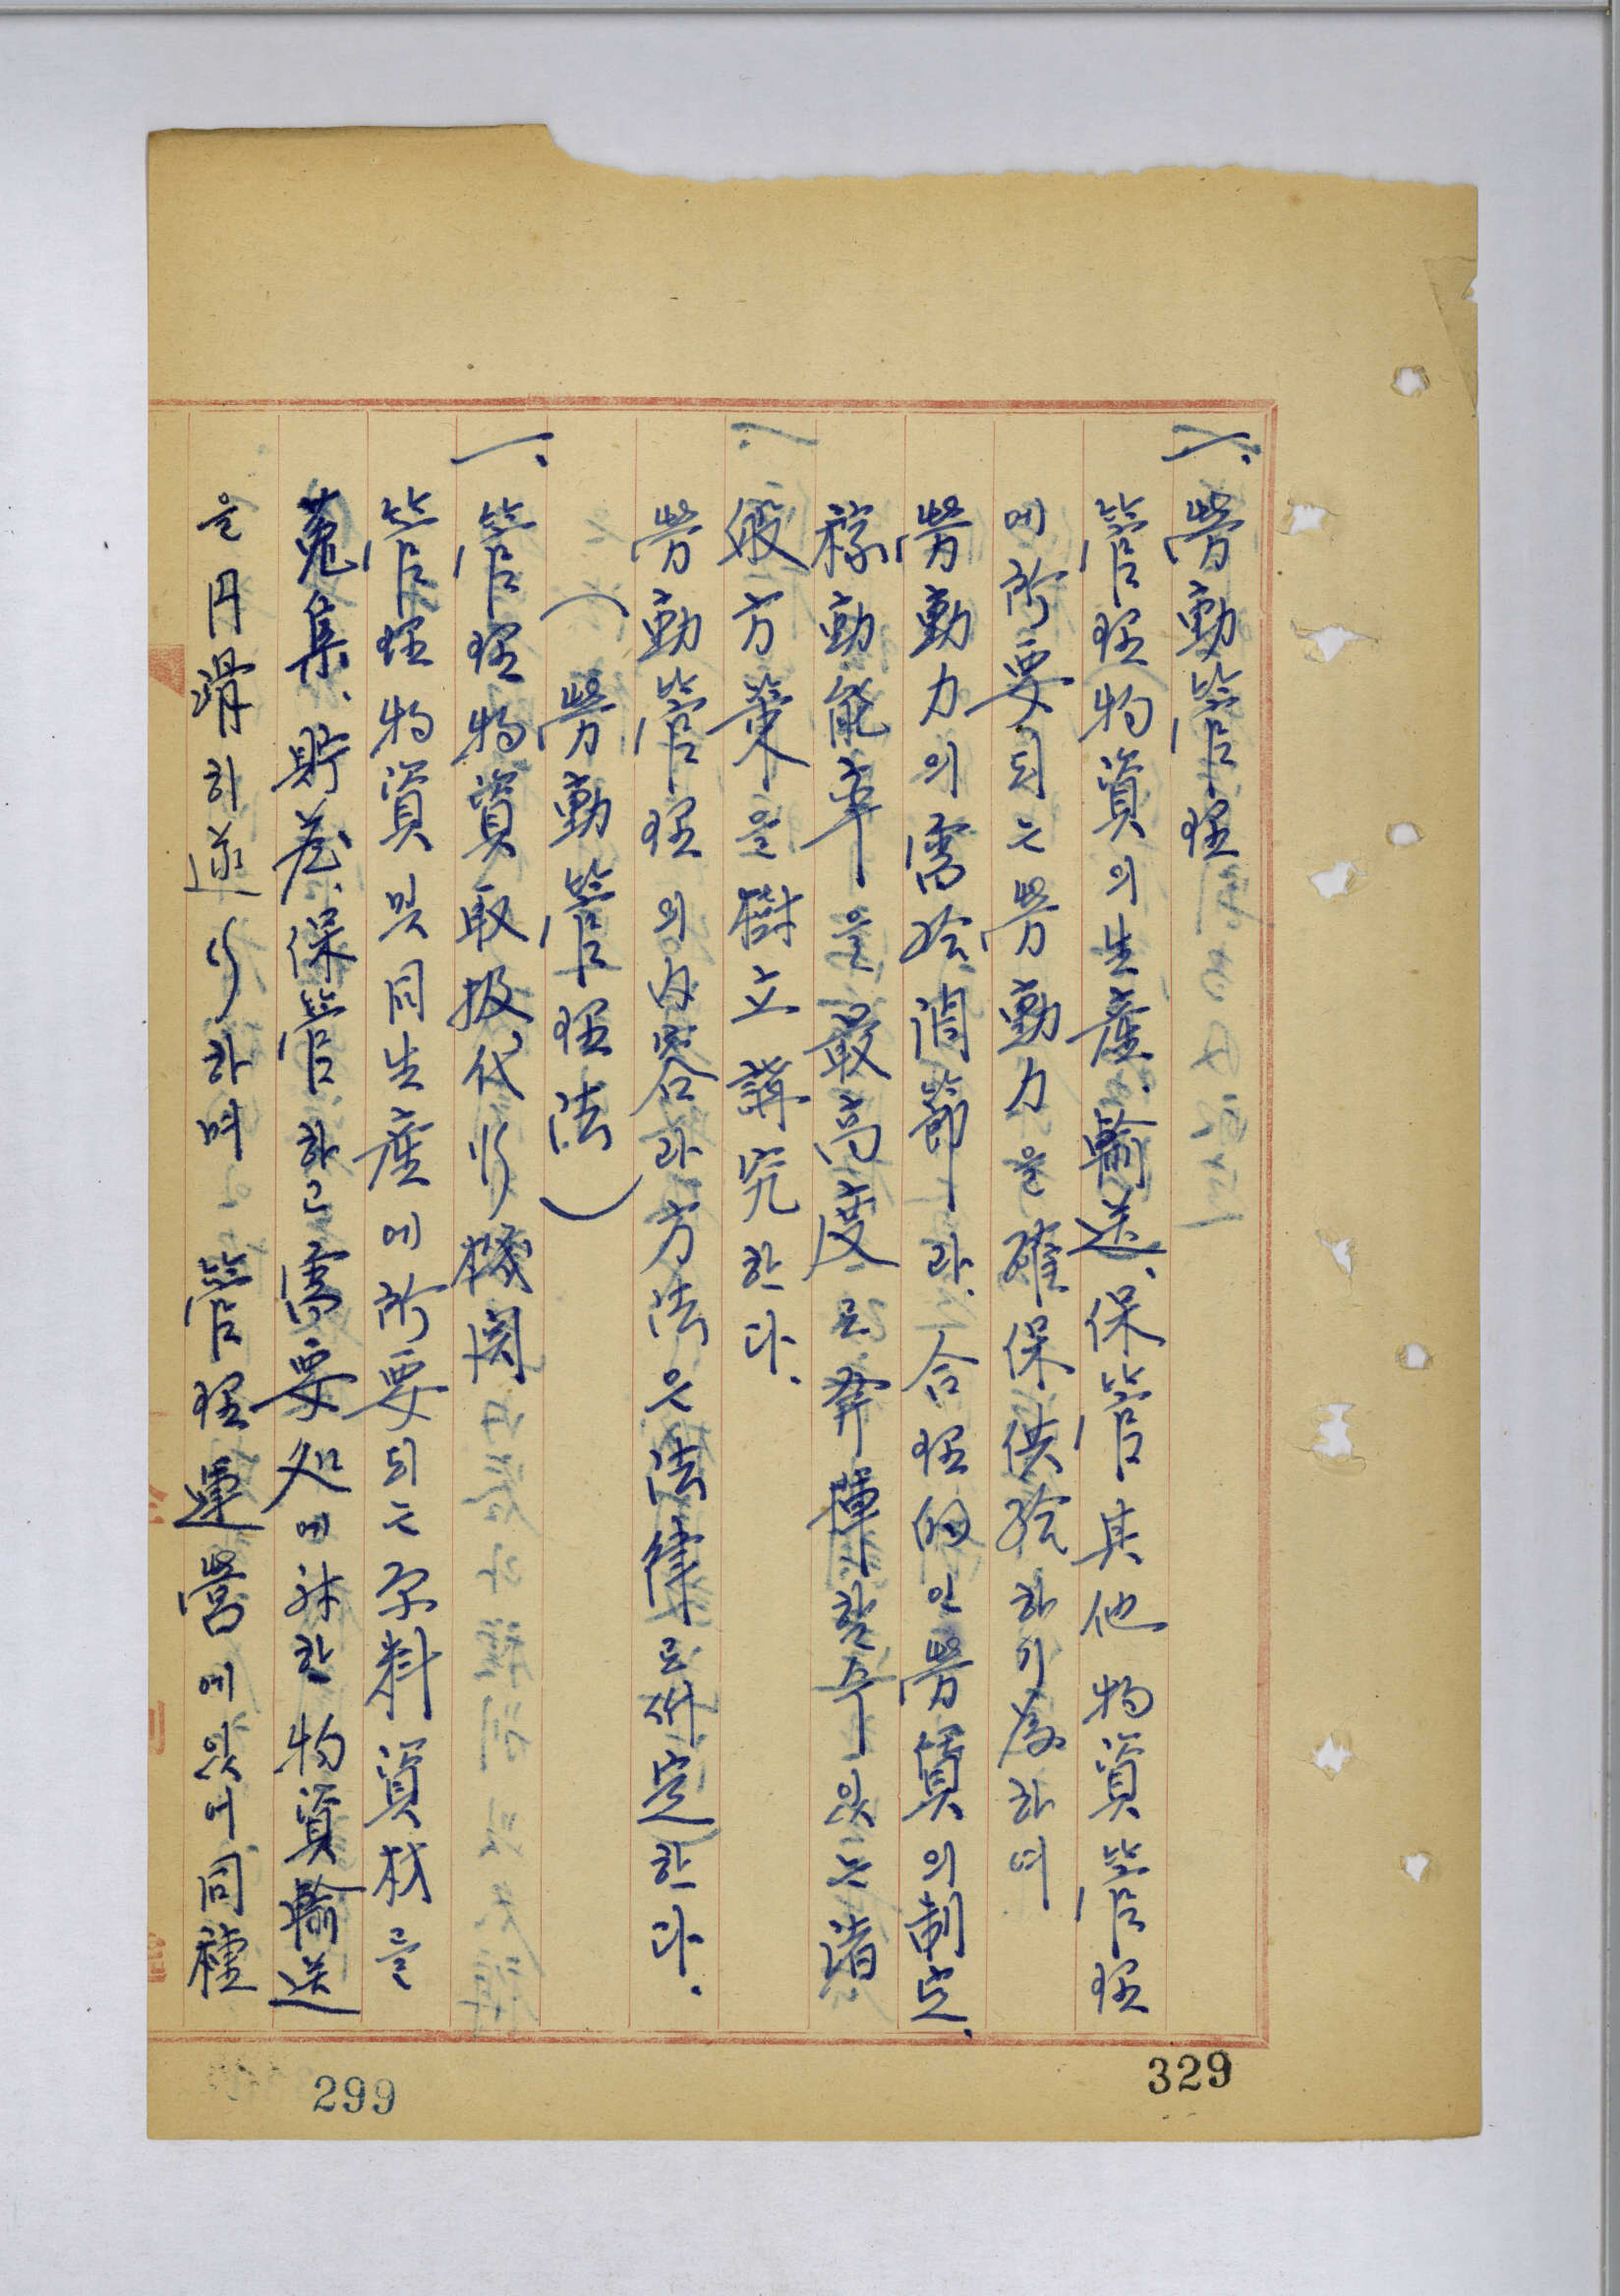 一、勞動管理
管理物資의生産、輸送、保管其他物資管理
에所要되는勞動力을確保供給하기爲하며
勞動力의需給調節과、合理的인勞賃의制定、
稼動能率을最高度로發揮할수있는諸
般方策을樹立講究한다.
勞動管理의內容과方法은法律로써定한다.
(勞動管理法)
一、管理物資取扱代行機関
管理物資및同生産에所要되는原料資材를
蒐集、貯蔵、保管하고需要処에対한物資輸送
을円滑히遂行하며管理運営에있어同種
329
299